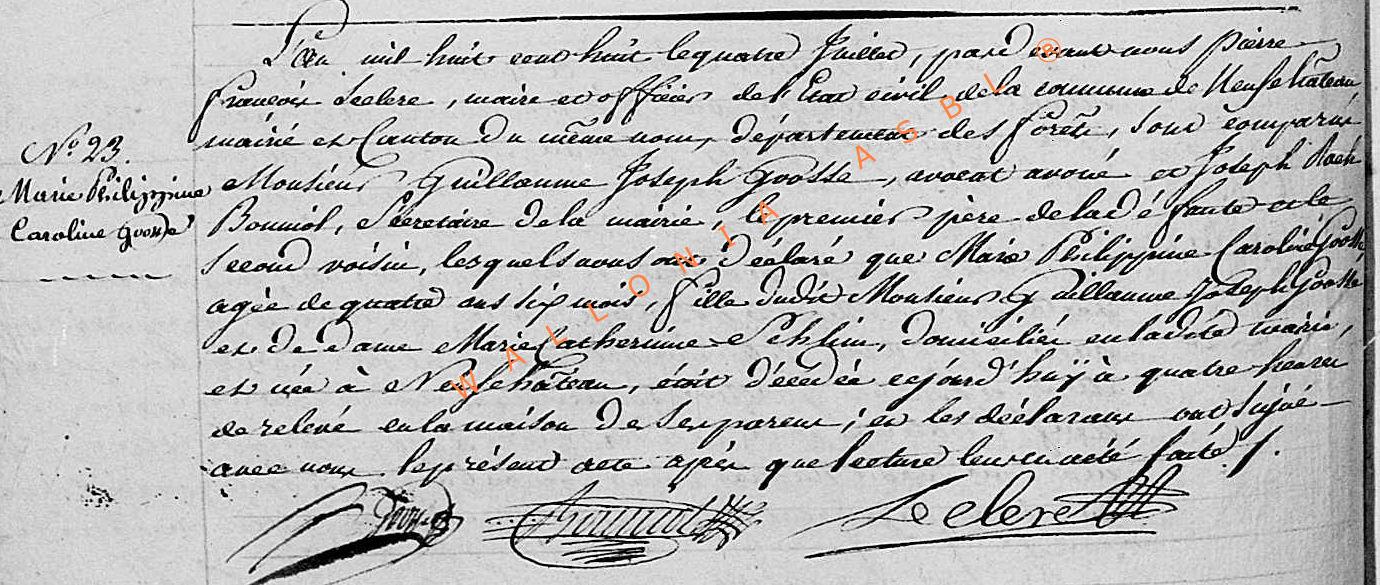 L'an mil huit cent huit le quatre Juillet, pardevant nous Pierre
François Leclere, maire et officier de l'Etat civil de la commune de Neufchâteau
mairie et Canton du même nom, département des forêts, sont comparus
Monsieur Guillaume Joseph Goosse, avocat avoué et Joseph Roch
Bonmiol, Sécretaire de la mairie, le premier père de la défunte et le
Second voisin, lesquels nous ont déclaré que Marie Philippine Caroline Goosse,
agée de quatre ans six mois, fille dudit Monsieur Guillaume Joseph Goosse
et de dame Marie Catherinne Schlim, domiciliés en ladite mairie,
et née à Neufchâteau, étoit décédée cejourd'huÿ à quatre heures
de relevé en la maison de ses parens; et les déclarans ont signé
avec nous le présent acte après que lecture leur en a été faite /.
N° 23.
Marie Philippine
Caroline Goosse
Goosse
Leclere
WALLONIA ASBL ®